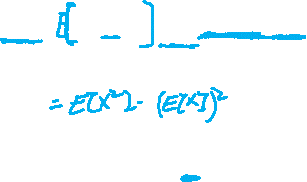 E[ ]
= E[X²] - (E[X])²